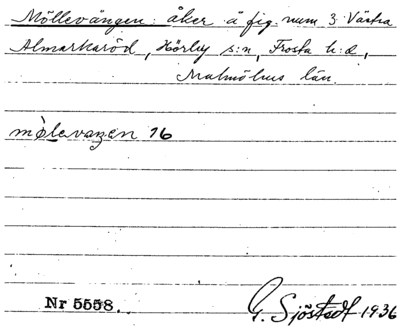 Möllevången: åker å fig. num 3 Västra
Almarkaröd, Hörby s:n, Frosta h:d,
Malmöhus län.
mølevaŋen 16
Nr 5558.
G. Sjöstedt 1936